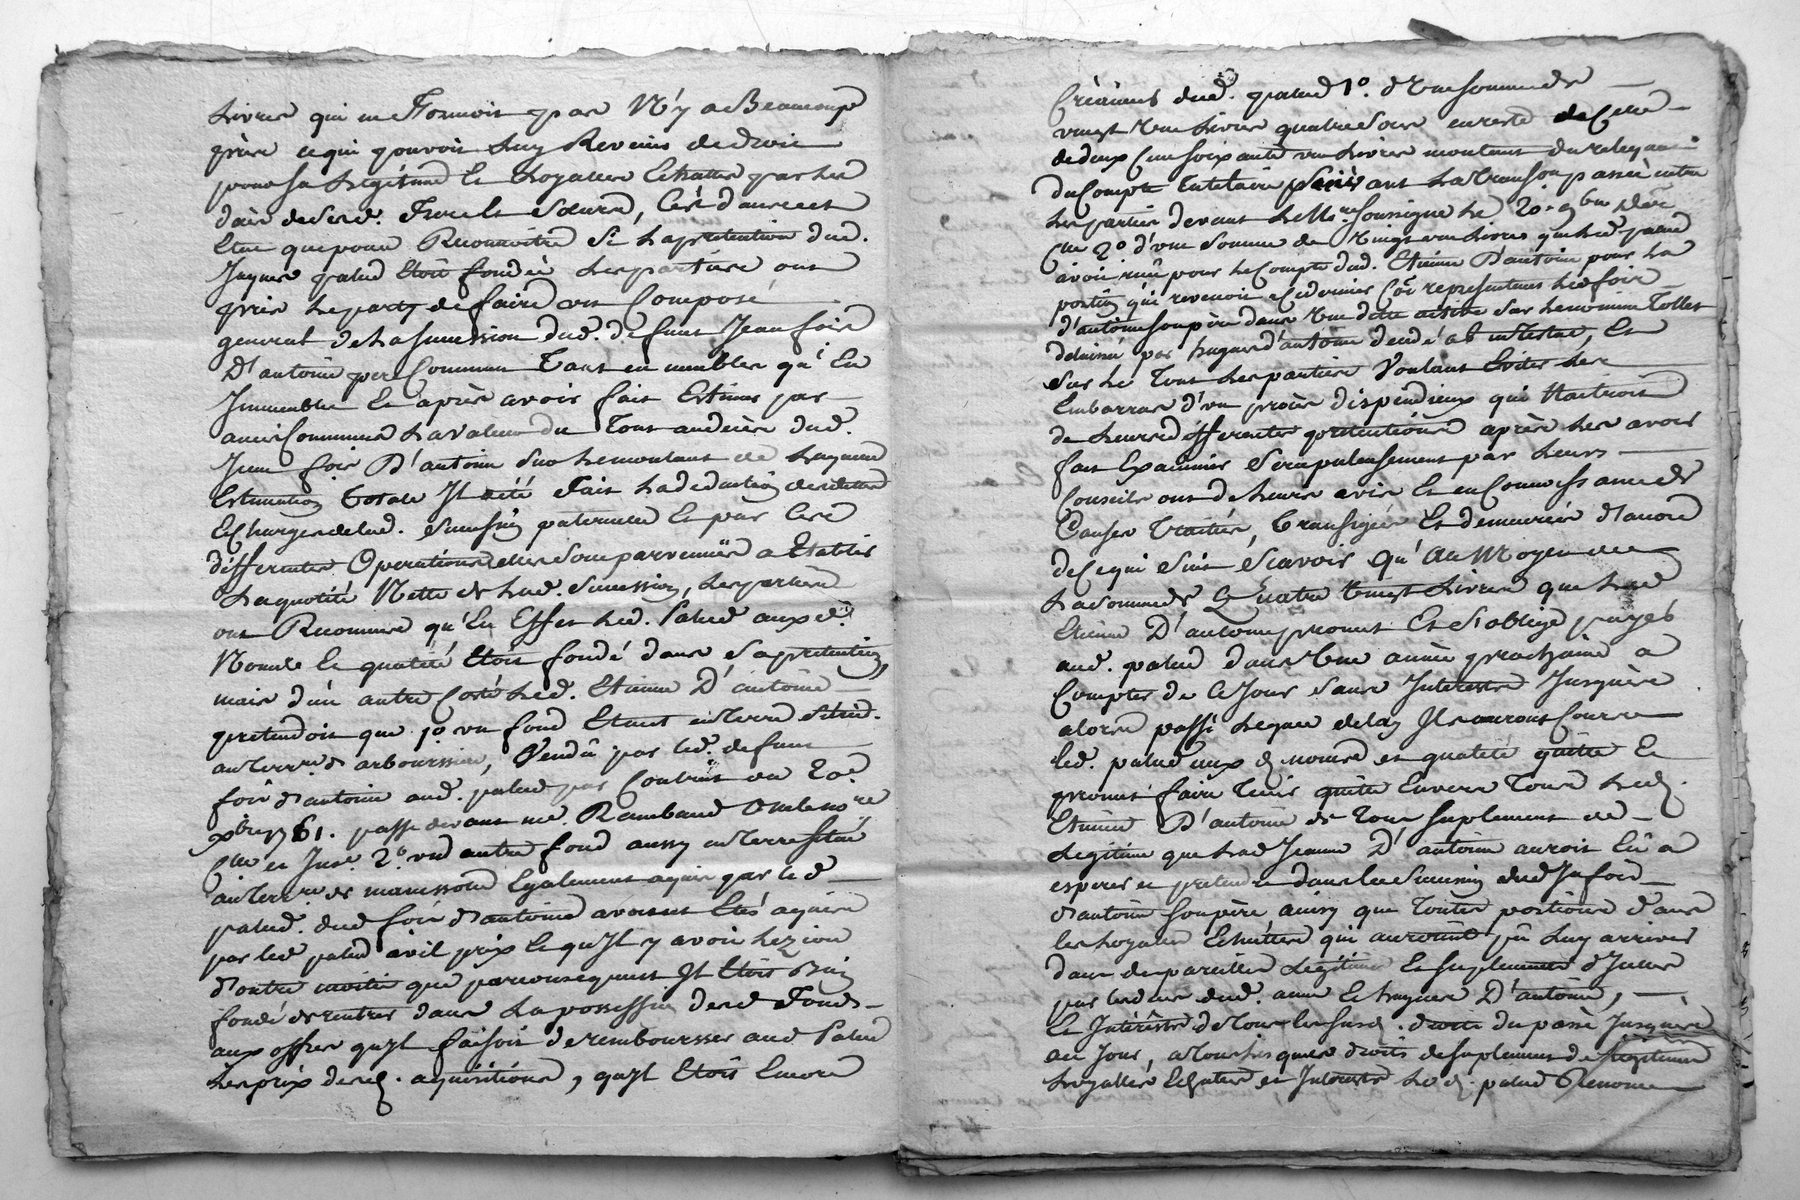 Livres qui ne Formoit pas N'y a Beaucoup
près ce qui pouvoit Luy Revenir de droit
pour sa Légitime Et Loyaller Echutter par Les
d'autre que pour Reconnoitre Si La pretention dud.
Jaques palud Etoit fondée Les parties ont
pris Le party de faire un Composé
general de La sucession dud. defunt Jean foix
D'antoine pere Commun Tant en meubles qu'En
Immeubles Et après avoir fait Estimer par
amis Communs La valeur du Tout audeces dud.
Jean foix D'antoine Sur Le montant de Laquelle
Estimation Totale Il a été Fait La deduction des dettes
Et Charges de Lad. Sucession paternelle Et par Ces
differentes Operations Elles Sont parvenües a Etablir
La quotité Nette de Lad. Sucession, Les parties
ont Reconnu qu'En Effet Led. Palud aux d.
Noms Et qualité Etoit fondé dans Sa pretention,
mais d'un autre Costé Led. Etienne D'antoine
pretendoit que 1° un fond Etant en Terre Situé
au Terr.re d'arboussier, Vendû par led. defunt
foix d'antoine aud. palud par Contrat du 20e
xbre 1761. passé devant me. Rambaud Notaire
2° un autre fond aussy en Terre Situé
au Terr.re de manissol Egalement aquis par led
palud. dud foix d'antoine avoient Etés aquis
par led palud a vil prix Et qu'Il y avoit Lezion
d'outre moitié que par consequent Il Etoit Bien
fondé de rentrer dans La possession desd Fonds
aux offres qu'Il faisoit de rembourser aud Palud
Les prix desd. aquisitions, qu'Il Etoit Encore
Créancier dud. palud 1°. d'Une somme de
vingt Une Livres quatre Sols en reste de Celle
de deux Cent soixante un Livres montant du reliquat
du Compte Tutelaire Suivant La Transon passée entre
Les parties devant Le No.re soussigné Le 20. 9bre
2°. d'une Somme de Vingt une Livres que Led palud
avoit reçu pour Le Compte dud. Etienne D'antoine pour La
portion qui revenoit a Ce dernier Com~e representant Led foix
d'antoine son père dans Une dette active Sur Le nommé Tollet
delaissée par hugues d'antoine decedé ab intestat, Et
Sur Le Tout Les parties Voulant Eviter Les
Embarras d'un procès dispendieux qui Naitroit
de Leurs differentes pretentions après Les avoir
fait Examiner Scrupuleusement par Leurs
Conseils ont de Leurs avis Et en Connoissance de
Causes Traitées, Transigées Et demeurées d'acord
de Ce qui Suit Scavoir qu'Au Moyen de
La Somme de Quatre Vingt Livres que Led
Etienne D'antoine promet Et S'oblige payer
aud. palud dans Une année prochaine a
Compter de Ce Jour Sans Interest Jusques
alors passé Lequel delay Ils auront Cours
led. palud aux d noms et qualité quitte Et
promet faire Tenir quitte Envers Tous Led.
Etienne D'antoine de Tout Suplement de
Legitime que Lad Jeanne D'antoine auroit Eû a
esperer et pretendre dans la Sucession dud Jn foix
d'antoine Son père ainsy que Toutes portions d'ans
les Loyaux Echuttes qui auroient pû Luy arriver
dans de pareilles Legitimes Et Suplement d'Icelles
par Led deces dud. anne Et hugues D'antoine,
Et Intérêsts de Tous les Susd. droits du passé Jusques
au Jour, a Tous Lesquels droits de Suplement de Legitime
Loyalles Echutes et Interests Led. palud Renonce